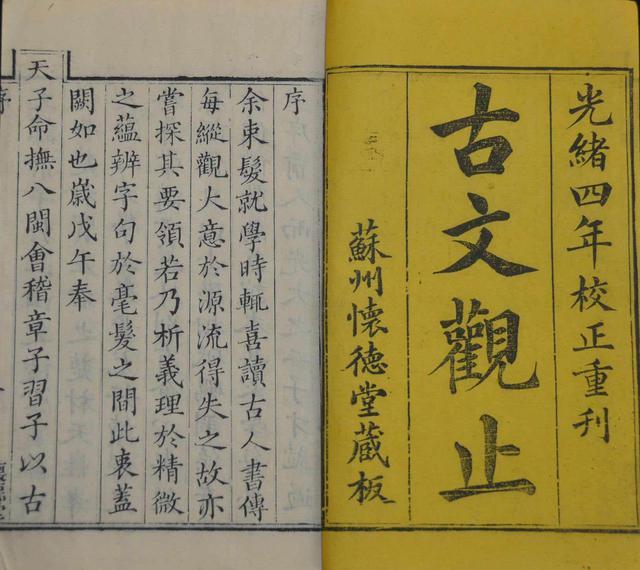 光緒四年校正重刊
古文觀止
蘇州懷德堂蔵板
序
余束髮就學時輒喜讀古人書傳
每縱觀大意於源流得失之故亦
嘗探其要領若乃析義理於精微
之蘊辨字句於毫髮之間此衷蓋
闕如也歲戊午奉
天子命撫八閩會稽章子習子以古
序